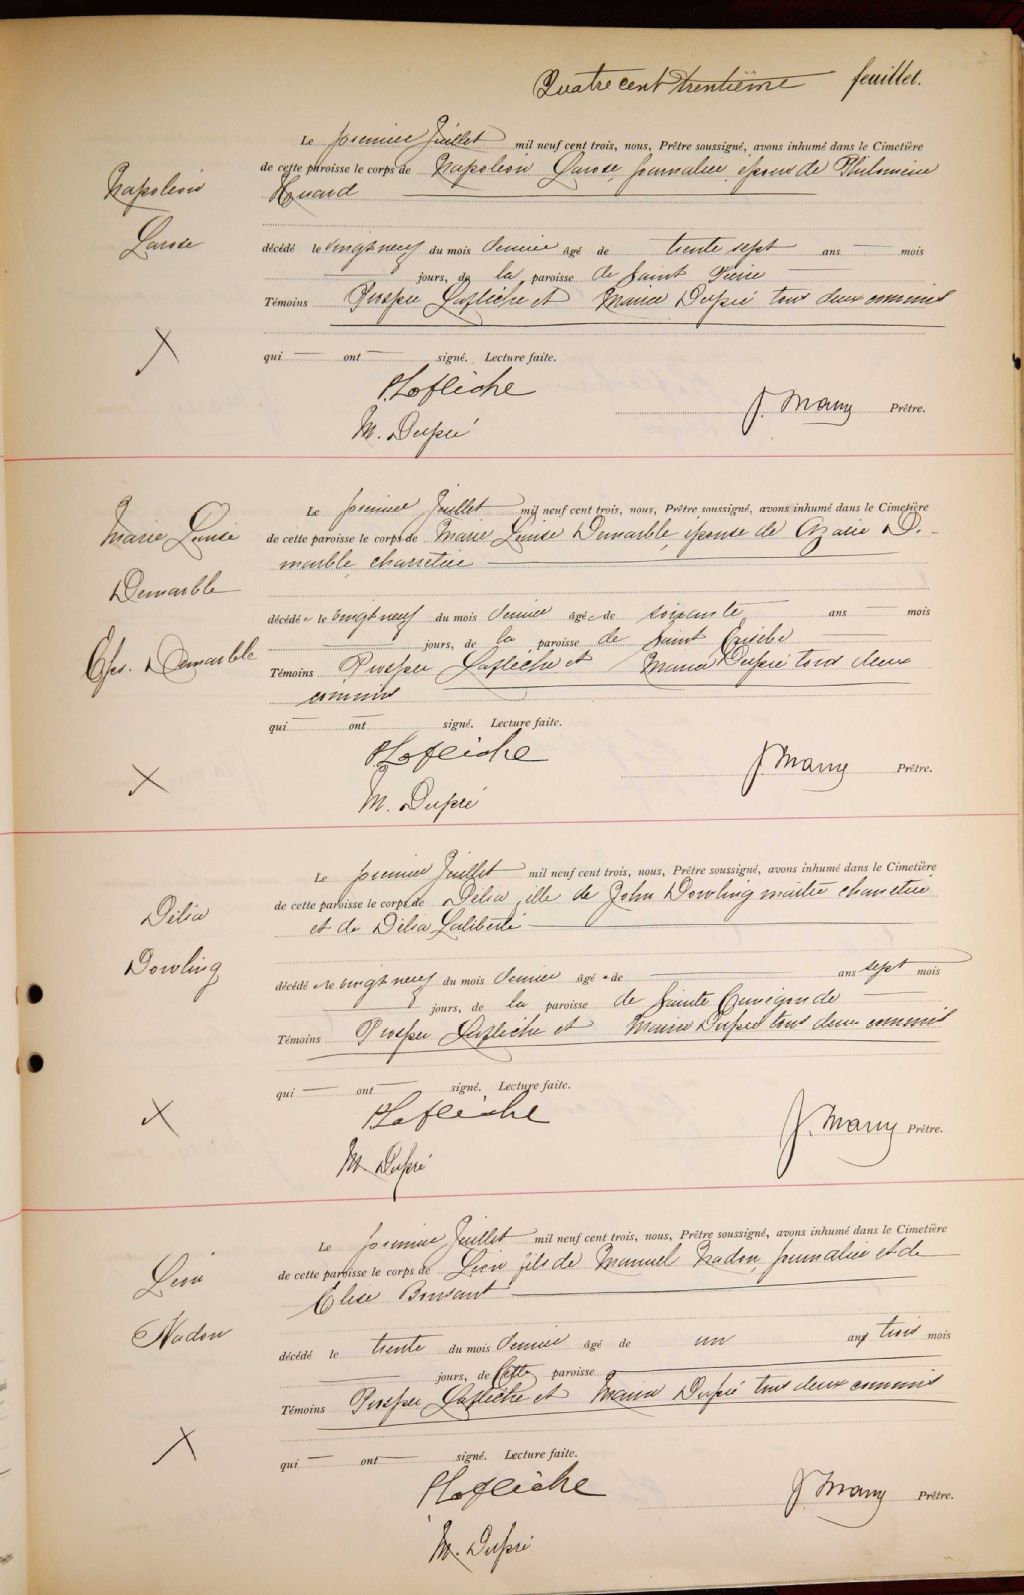 Quatre cent trentième feuillet.
Le premier Juillet mil neuf cent trois, nous, Prêtre soussigné, avons inhumé dans le Cimetière
Napoléon
de cette paroisse le corps de Napoléon Larose, journalier, époux de Philomène
Huard
Larose
décédé le vingt neuf du mois dernier âgé de trente sept ans — mois
— jours, de la paroisse de Saint Pierre —
Témoins Prosper Laflèche et Maurice Dupré tous deux commis
X
qui — ont — signé. Lecture faite.
P. Laflèche
J. Many Prêtre.
M. Dupré
Marie Louise
Le premier Juillet mil neuf cent trois, nous, Prêtre soussigné, avons inhumé dans le Cimetière
de cette paroisse le corps de Marie Louise Demarble, épouse de Azarie De-
marble, charretier —
Demarble
décédée le vingt neuf du mois dernier âgée de soixante ans — mois
— jours, de la paroisse de Saint Eusèbe
Eps. Demarble
Témoins Prosper Laflèche et Maurice Dupré tous deux
commis
qui — ont — signé. Lecture faite.
P. Laflèche
X
J. Many Prêtre.
M. Dupré
Le premier Juillet mil neuf cent trois, nous, Prêtre soussigné, avons inhumé dans le Cimetière
Délia
de cette paroisse le corps de Délia, fille de John Dowling maître charretier
et de Délia Laliberté —
Dowling
décédée le vingt neuf du mois dernier âgée de — ans sept mois
— jours, de la paroisse de Sainte Cunégonde —
Témoins Prosper Laflèche et Maurice Dupré tous deux commis
qui — ont — signé. Lecture faite.
X
P. Laflèche
J. Many Prêtre.
M. Dupré
Le premier Juillet mil neuf cent trois, nous, Prêtre soussigné, avons inhumé dans le Cimetière
Léon
de cette paroisse le corps de Léon fils de Manuel Nadon, journalier et de
Elise Bonsant —
Nadon
décédé le trente du mois dernier âgé de un an trois mois
— jours, de Cette paroisse —
Témoins Prosper Laflèche et Maurice Dupré tous deux commis
X
qui — ont — signé. Lecture faite.
P. Laflèche
J. Many Prêtre.
M. Dupré